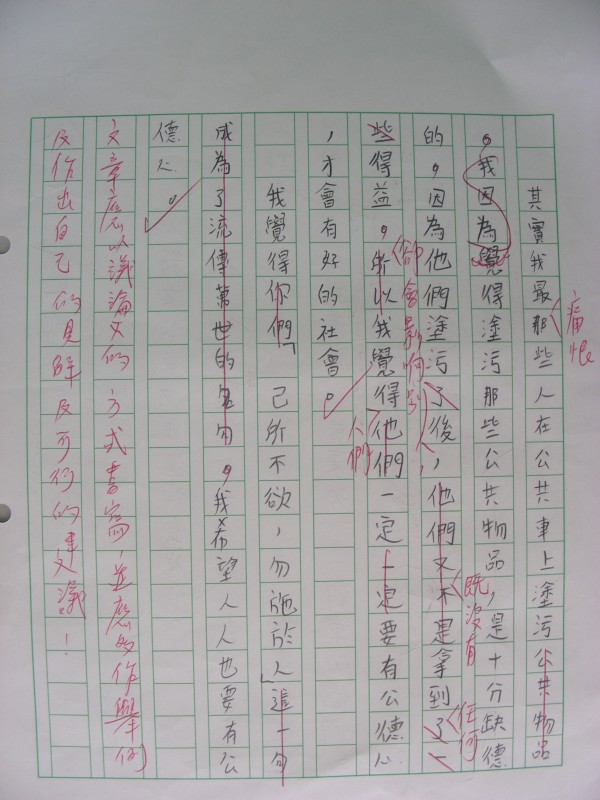 其實我最那些人在公共車上塗污公共物品
痛恨
。我因為覺得塗污那些公共物品,是十分缺德
的。因為他們塗污了後,他們又不是拿到了一
既沒有
任何
些得益。所以我覺得他們一定一定要有公德心
卻會影响別
人們
,才會有好的社會。
我覺得你們「己所不欲,勿施於人」這一句
成為了流傳萬世的名句。我希望人人也要有公
德心。
文章應以議論文的方式書寫,並應多作舉例
及作出自己的見解及可行的建議!